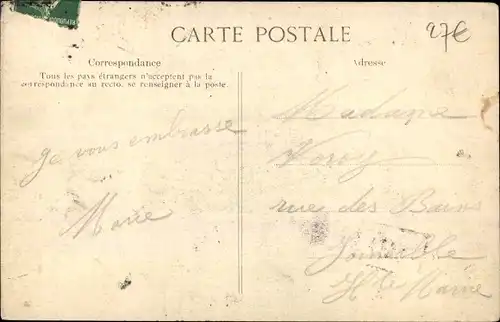 27€
CARTE POSTALE
Correspondance
Adresse
Tous les pays étrangers n'acceptent pas la
correspondance au recto, se renseigner à la poste.
Je vous embrasse
Marie
Madame
rue des Bains
Hte Marne